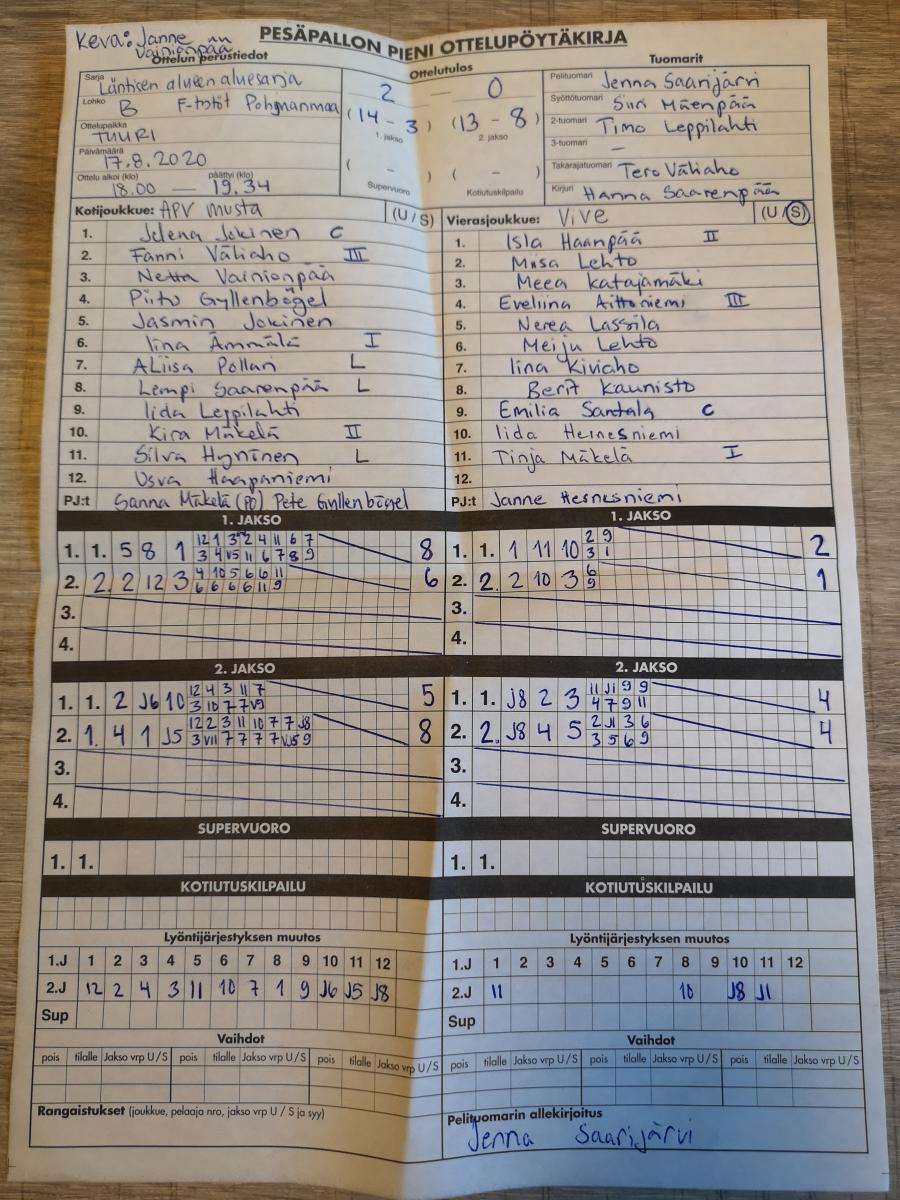 Keva: Janne
Vainionpää
PESÄPALLON PIENI OTTELUPÖYTÄKIRJA
Ottelun perustiedot
Ottelutulos
Tuomarit
Sarja Läntisen alueen aluesarja
Lohko B F-tytöt Pohjanmaa
Ottelupaikka TUURI
Päivämäärä 17.8.2020
Ottelu alkoi (klo) 18.00 — päättyi (klo) 19.34
2 — 0
(14 - 3) (13 - 8)
1. jakso 2. jakso
( - ) ( - )
Supervuoro Kotiutuskilpailu
Pelituomari Jenna Saarijärvi
Syöttötuomari Siiri Mäenpää
2-tuomari Timo Leppilahti
3-tuomari —
Takarajatuomari Tero Väliaho
Kirjuri Hanna Saarenpää
Kotijoukkue: APV musta (U / S)
1. Jelena Jokinen C
2. Fanni Väliaho III
3. Netta Vainionpää
4. Piitu Gyllenbögel
5. Jasmin Jokinen
6. Iina Ämmälä I
7. ALiisa Pollari L
8. Lempi Saarenpää L
9. Iida Leppilahti
10. Kira Mäkelä II
11. Silva Hynninen L
12. Usva Haapaniemi
PJ:t Sanna Mäkelä (PO) Pete Gyllenbögel
Vierasjoukkue: ViVe (U / S)
1. Isla Haanpää II
2. Miisa Lehto
3. Meea Katajamäki
4. Eveliina Aittoniemi III
5. Nerea Lassila
6. Meiju Lehto
7. Iina Kiviaho
8. Berit Kaunisto
9. Emilia Santala C
10. Iida Hernesniemi
11. Tinja Mäkelä I
12.
PJ:t Janne Hernesniemi
1. JAKSO
1. 1. 5 8 1 12 1 3 2 4 11 6 7 8
3 4 V5 11 6 7 8 9
2. 2. 2 12 3 4 10 5 6 6 11 6
6 6 6 6 11 9
3.
4.
1. JAKSO
1. 1. 1 11 10 2 9 2
3 1
2. 2. 2 10 3 6 1
9
3.
4.
2. JAKSO
1. 1. 2 J6 10 12 4 3 11 7 5
3 10 7 7 V9
2. 1. 4 1 J5 12 2 3 11 10 7 7 J8 8
3 V11 7 7 7 7 VJ5 9
3.
4.
2. JAKSO
1. 1. J8 2 3 11 J1 9 9 4
4 7 9 11
2. 2. J8 4 5 2 J1 3 6 4
3 5 6 9
3.
4.
SUPERVUORO
1. 1.
SUPERVUORO
1. 1.
KOTIUTUSKILPAILU
KOTIUTUSKILPAILU
Lyöntijärjestyksen muutos
1.J 1 2 3 4 5 6 7 8 9 10 11 12
2.J 12 2 4 3 11 10 7 1 9 J6 J5 J8
Sup
Lyöntijärjestyksen muutos
1.J 1 2 3 4 5 6 7 8 9 10 11 12
2.J 11 10 J8 J1
Sup
Vaihdot
pois tilalle Jakso vrp U / S pois tilalle Jakso vrp U / S pois tilalle Jakso vrp U / S
Vaihdot
pois tilalle Jakso vrp U / S pois tilalle Jakso vrp U / S pois tilalle Jakso vrp U / S
Rangaistukset (joukkue, pelaaja nro, jakso vrp U / S ja syy)
Pelituomarin allekirjoitus
Jenna Saarijärvi